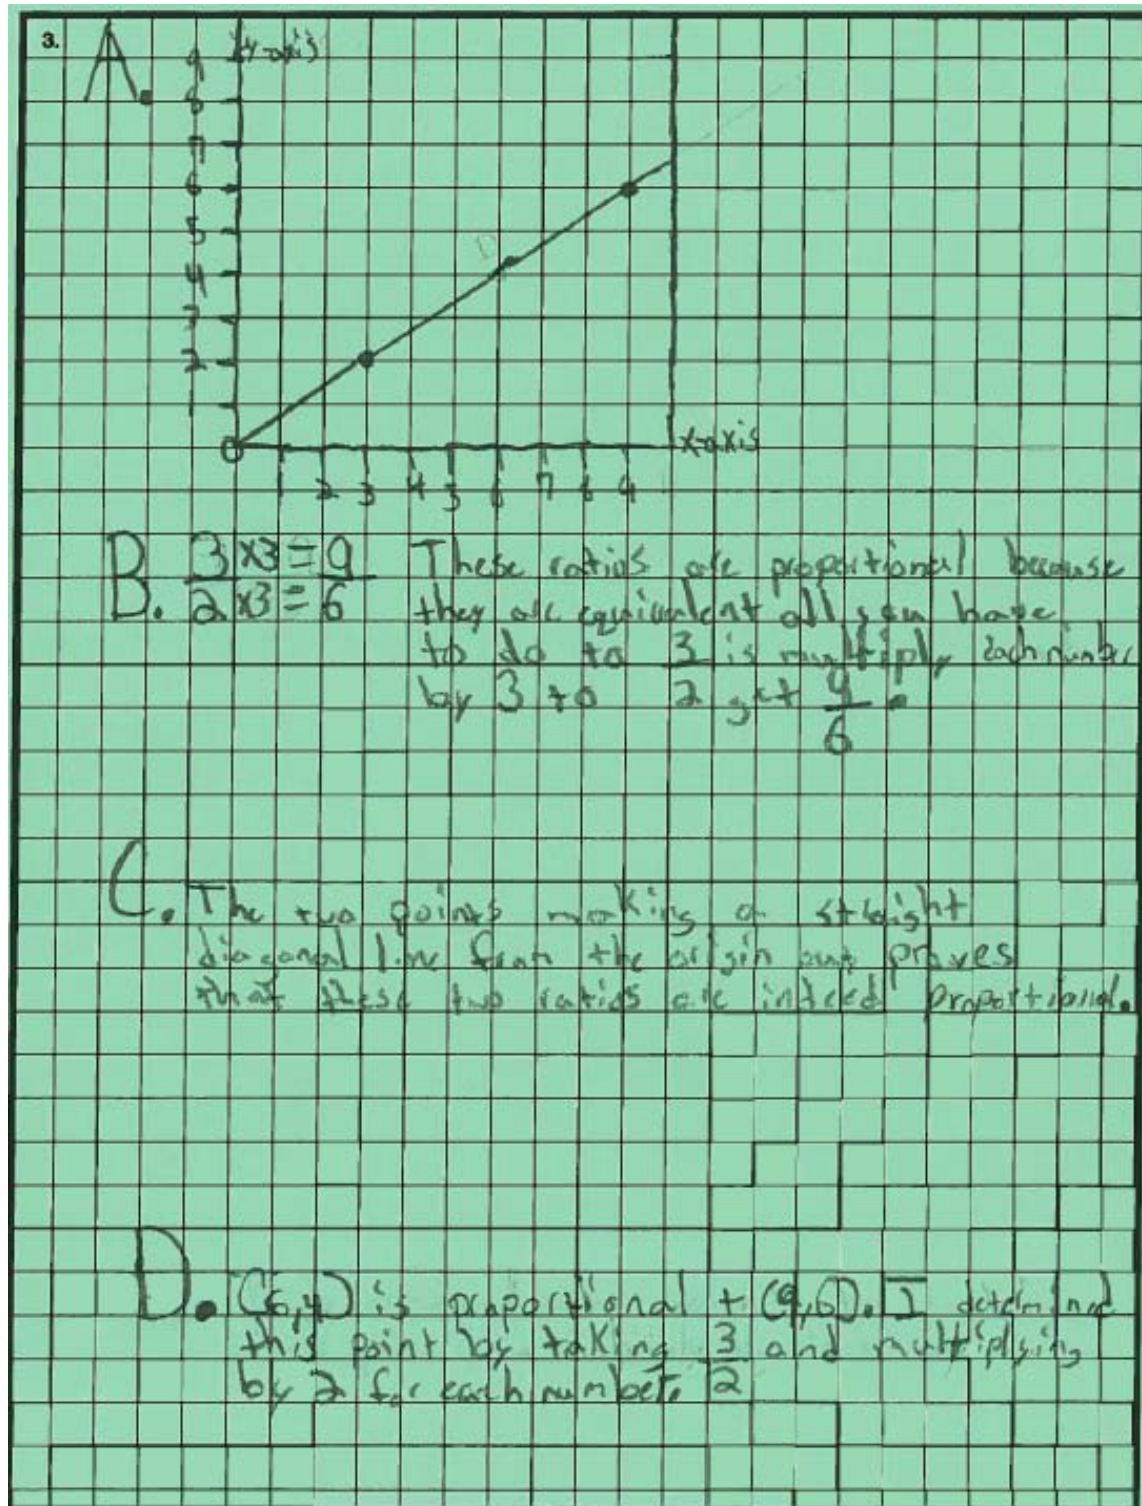 3.
A.
y-axis
9
8
7
6
5
4
3
2
1
0
x-axis
1 2 3 4 5 6 7 8 9
B. 3 x3 = 9
2 x3 = 6
These ratios are proportional because
they are equivalent all you have
to do to 3 is multiply each number
by 3 to 2 get 9
6 .
C. The two points making a straight
diagonal line from the origin out proves
that these two ratios are indeed proportional.
D. (6,4) is proportional t (9,6). I determined
this point by taking 3 and multiplying
by 2 for each number. 2